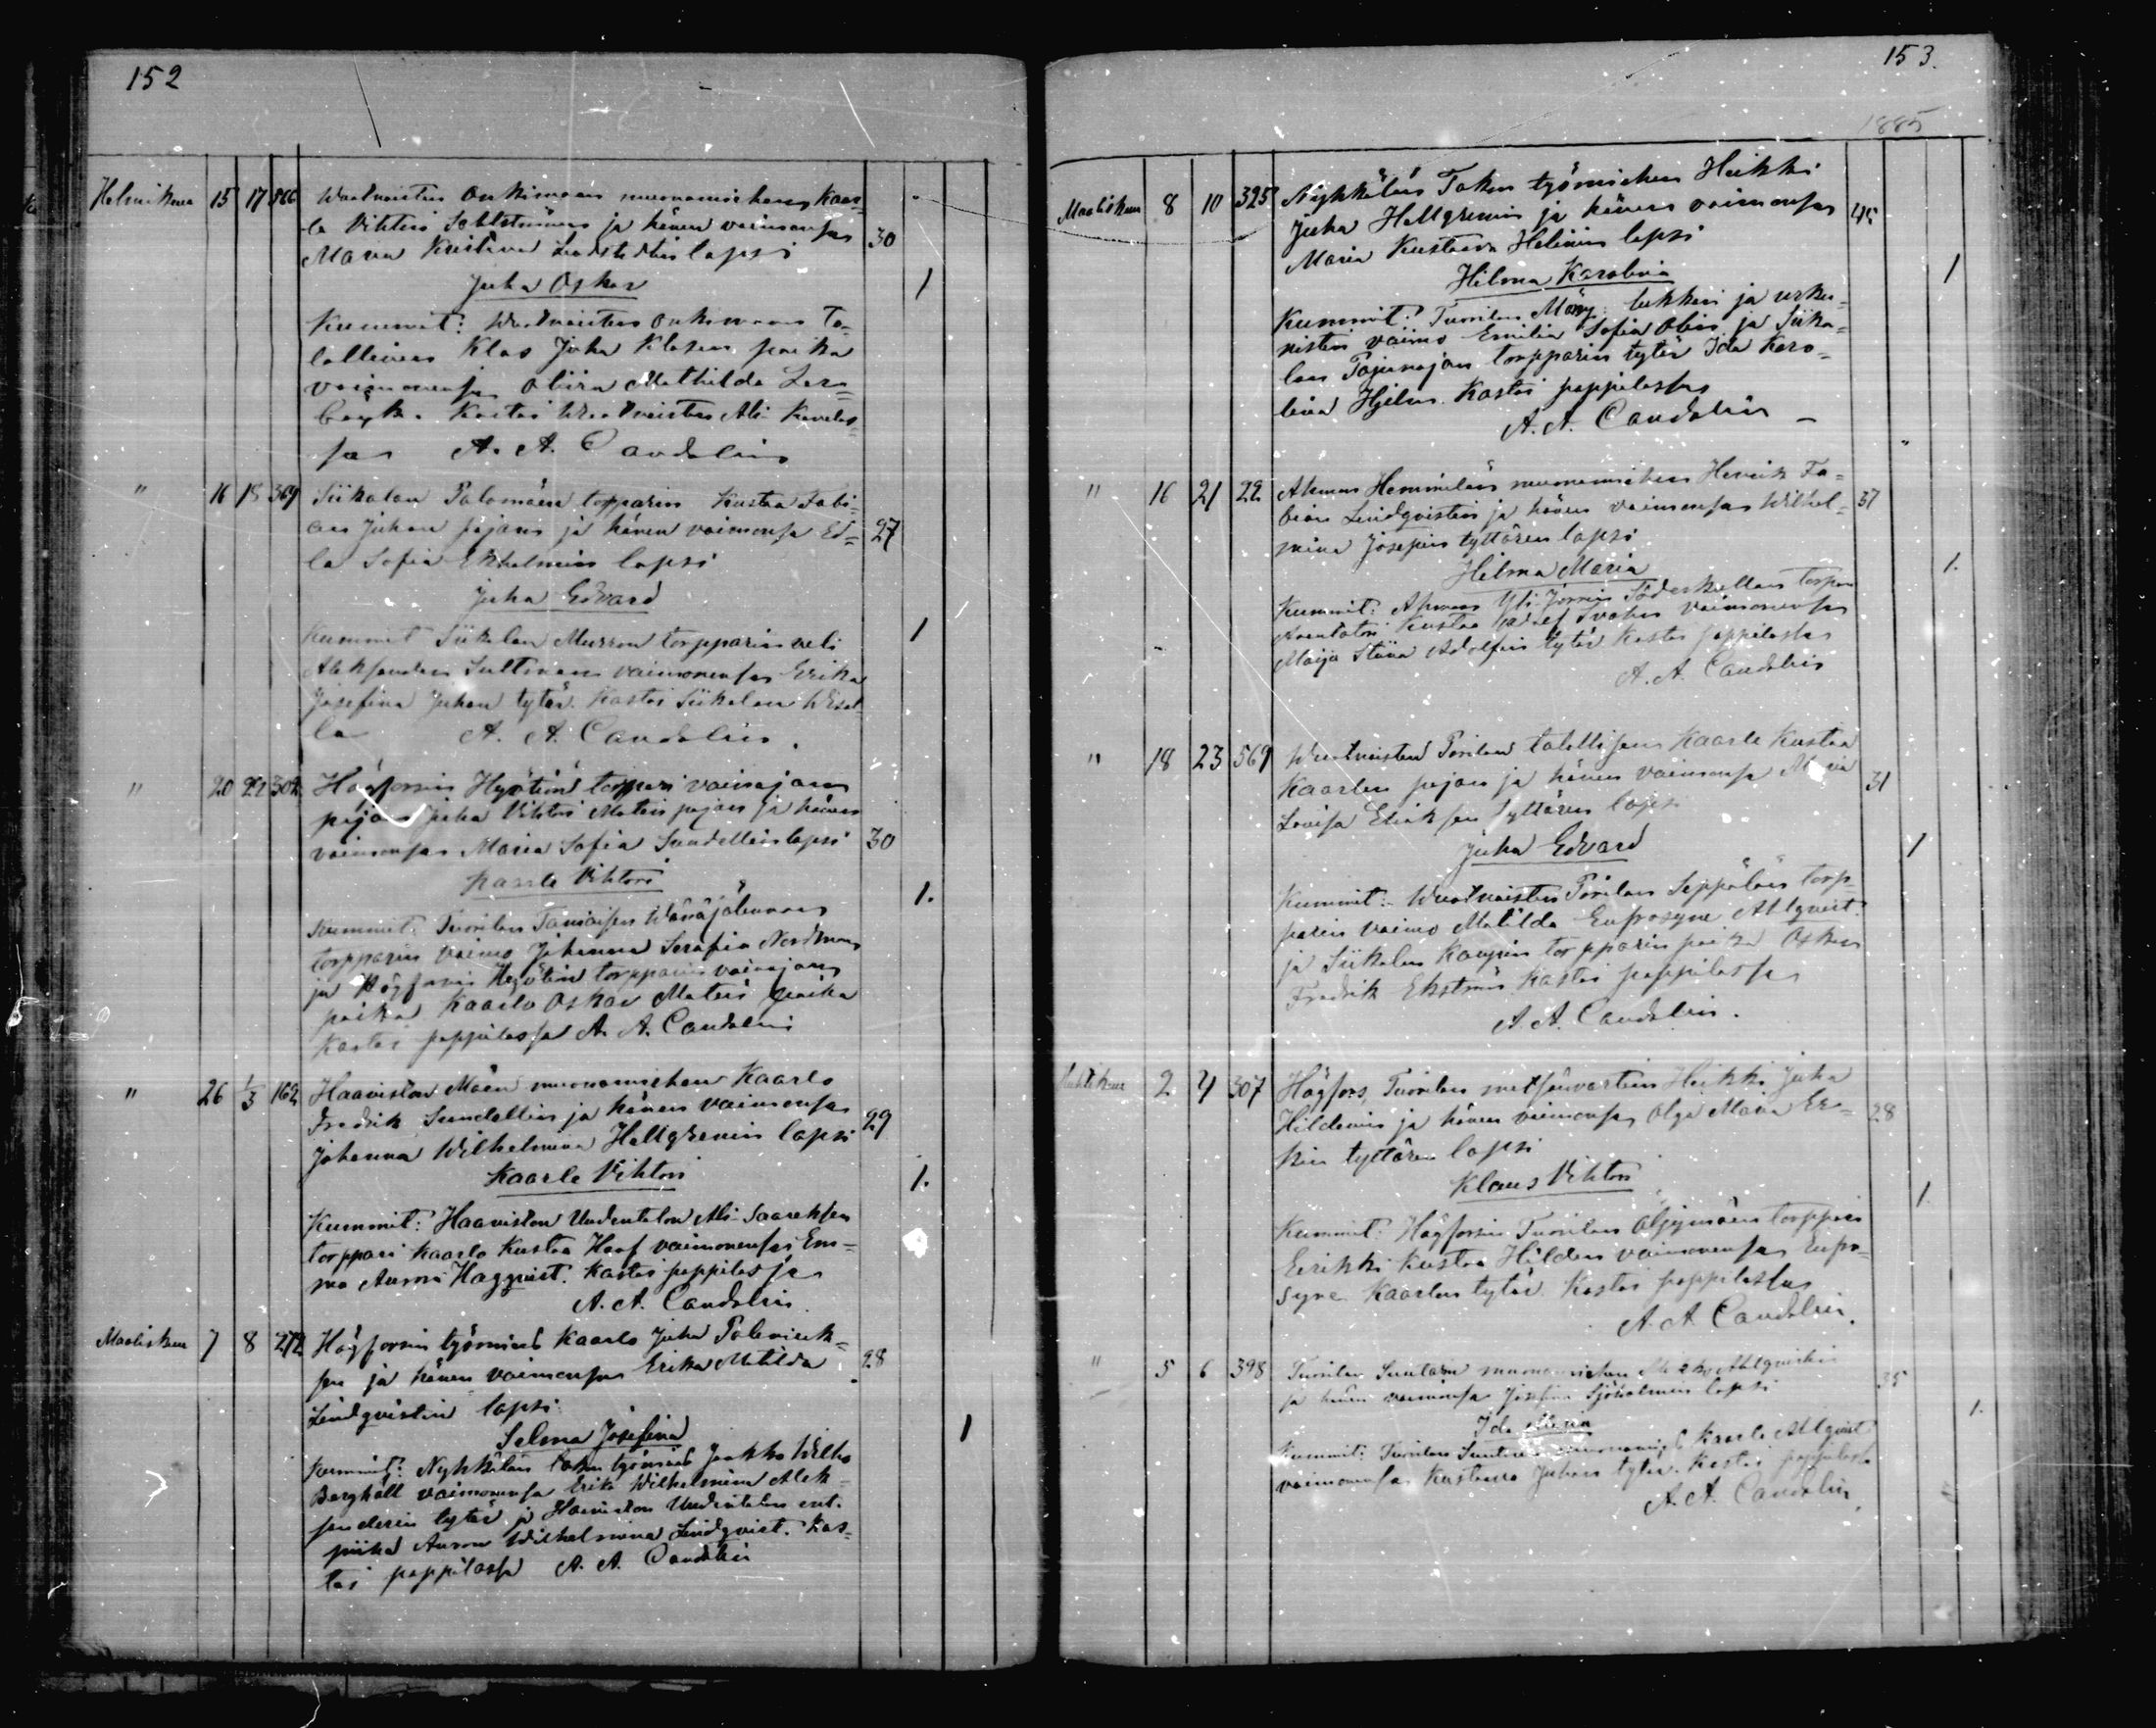 152
Helmikuu 15 17 366 Wuotnaisten Onkimaan muonamiehen Kaar-
le Vihtori Sahlströmin ja hänen vaimonsa 30
Maria Kristina Lindstedtin lapsi
Juha Oskar 1
Kummit: Wuotnaisten Onkimaan Ta-
lollinen Klas Juha Klasen poika
vaimonensa Miina Mathilda
Kastoi Wuotnaisten Ali-
sa A. A. Candolin
" 16 18 369 Siikalan Palomäen torpparin Kustaa Fabi-
an Juhan pojan ja hänen vaimonsa Ed- 27
la Sofia Ekholmin lapsi
Juha Edvard
Kummit Siikalan Murron torpparin veli 1
Aleksander Sultman vaimonensa Erika
Josefina Juhan tytär. Kastoi Siikalan
la A. A. Candolin.
" 20 22 302 Högforsin Hyötin torppari vainajan
pojan Juha Vihtori Matin pojan ja hänen
vaimonsa Maria Sofia Sundellin lapsi 30
Kaarle Vihtori 1.
Kummit: Tuorilan Tanaisen
torpparin vaimo Johanna Serafia Nordman
ja Högforsin Hyötin torpparin vainajan
poika Kaarlo Oskar Matin poika
Kastoi pappilassa A. A. Candolin
" 26 1/3 162 Haaviston Mäen muonamiehen Kaarlo
Fredrik Sundellin ja hänen vaimonsa 29
Johanna Wilhelmina Hellgrenin lapsi
Kaarle Vihtori 1.
Kummit: Haaviston Uudentalon Ali-Saareksen
torppari Kaarlo Kustaa Haaf vaimonensa Em-
ma Aurora Hagqvist. Kastoi pappilassa
A. A. Candolin.
Maaliskuu 7 8 272 Högforsin työmies Kaarlo Juha
sen ja hänen vaimonsa Erika Matilda 28
Lindqvistin lapsi
Selma Josefina 1
Kummit: Nyhkälän Takun työmies Jaakko Wilho
Berghäll vaimonensa Erika Wilhelmina Alek-
sanderin tytär ja Haaviston Uudentalon ent.
piika Aurora Wilhelmina Lindqvist. Kas-
toi pappilassa A. A. Candolin
153.
1885
Maaliskuu 8 10 325 Nyhkälän Takun työmiehen Heikki
Juha Hellgrenin ja hänen vaimonsa 45
Maria Kustaava Helinin lapsi
Hilma Karolina 1
Kummit: Tuorilan lukkari ja urku-
nistin vaimo Emilia Sofia Olin ja Siika-
lan Pajunojan torpparin tytär Ida Karo-
lina Hjelm. Kastoi pappilassa
A. A. Candolin
" 16 21 22 Ahmon Hemmilän muonamiehen Henrik Fa-
bian Lindqvistin ja hänen vaimonsa Wilhel- 37
mina Josepin tyttären lapsi
Hilma Maria 1.
Kummit: Ahmon Yli-Jonnin Söderkullan torpan
Kustaa vaimonensa
Maija Stiina Adolfin tytär Kastoi pappilassa
A. A. Candolin
" 18 23 569 Wuotnaisten Porilan talollisen Kaarle Kustaa
Kaarlen pojan ja hänen vaimonsa Maria 31
Lovisa Eliaksen tyttären lapsi
Juha Edvard 1
Kummit: Wuotnaisten Porilan Seppälän torp-
parin vaimo Matilda Eufrosyne Ahlqvist.
ja Siikalan Kaupin torpparin poika Oskar
Fredrik Ekström Kastoi pappilassa
A. A. Candolin.
Huhtikuu 2 4 307 Högfors, Tuorilan metsänvartian Heikki Juha
Hildenin ja hänen vaimonsa Olga Maria Er- 28
kin tyttären lapsi
Klaus Vihtori 1
Kummit: Högforsin Tuorilan Öljymäen torppari
Eerikki Kustaa Hilden vaimonensa Eufro-
syne Kaarlen tytär. Kastoi pappilassa
A. A. Candolin.
" 5 6 398 Tuorilan Suutarin muonamiehen Ahlqvistin
ja hänen vaimonsa Josefina Sjöholmin lapsi 35
Ida Maria 1.
Kummit: Tuorilan Suutarin muonamies Kaarle Ahlqvist
vaimonensa Kustaava Juhan tytär. Kastoi pappilassa
A. A. Candolin.